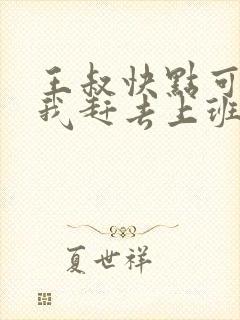 王叔快點可
我赶去上班
夏世祥